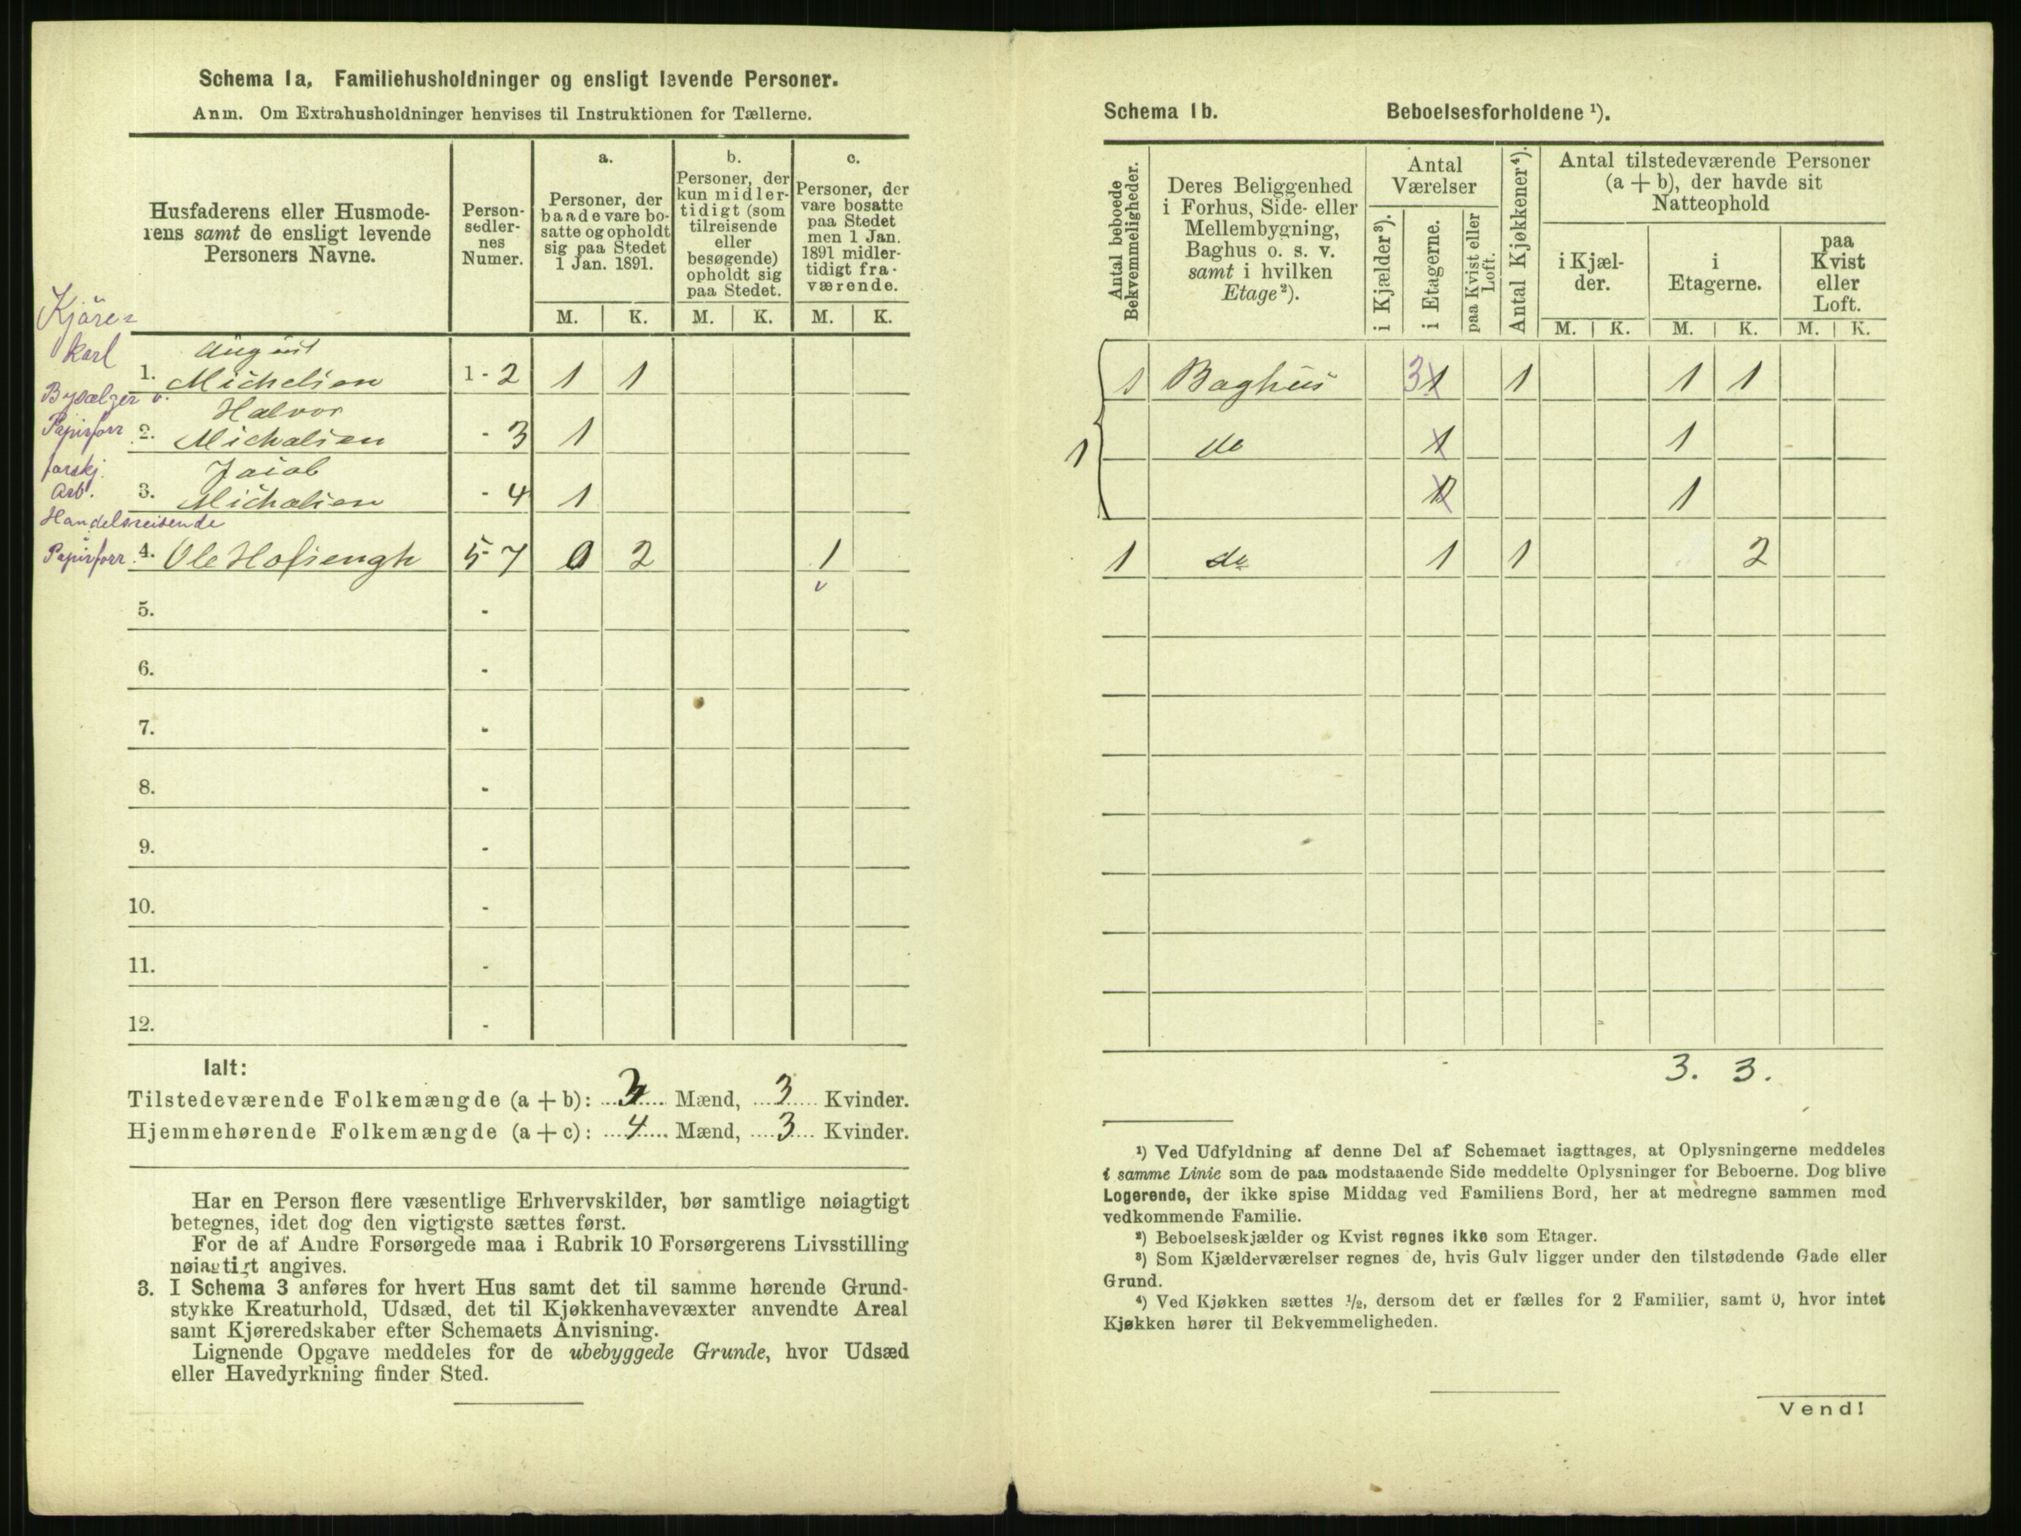 Schema 1a, Familiehusholdninger og ensligt levende Personer.
Anm. Om Extrahusholdninger henvises til Instruktionen for Tællerne.
Husfaderens eller Husmode-
rens samt de ensligt levende
Personers Navne.
Person-
sedler-
nes
Numer.
a.
Personer, der
baade vare bo-
satte og opholdt
sig paa Stedet
1 Jan. 1891.
b.
Personer, der
kun midler-
tidigt (som
tilreisende
eller
besøgende)
opholdt sig
paa Stedet.
c.
Personer, der
vare bosatte
paa Stedet
men 1 Jan.
1891 midler-
tidigt fra-
værende.
M. K. M. K. M. K.
Kjöre-
karl
August
1. Michelsen 1 - 2 1 1
Bysælger v.
Halvor
Papirforr 2. Michalsen - 3 1
forskj.
Jacob
Arb. 3. Michalsen - 4 1
Handelsreisende
i
Papirforr. 4. Ole Hofsengh 5 - 7 0 2 1
v
5. -
6. -
7. -
8. -
9. -
10. -
11. -
12. -
Ialt:
Tilstedeværende Folkemængde (a + b): 3 Mænd, 3 Kvinder.
Hjemmehørende Folkemængde (a + c): 4 Mænd, 3 Kvinder.
Har en Person flere væsentlige Erhvervskilder, bør samtlige nøiagtigt
betegnes, idet dog den vigtigste sættes først.
For de af Andre Forsørgede maa i Rubrik 10 Forsørgerens Livsstilling
nøiagtigt angives.
3. I Schema 3 anføres for hvert Hus samt det til samme hørende Grund-
stykke Kreaturhold, Udsæd, det til Kjøkkenhavevæxter anvendte Areal
samt Kjøreredskaber efter Schemaets Anvisning.
Lignende Opgave meddeles for de ubebyggede Grunde, hvor Udsæd
eller Havedyrkning finder Sted.
Schema 1b. Beboelsesforholdene ¹).
Antal beboede
Bekvemmeligheder.
Deres Beliggenhed
i Forhus, Side- eller
Mellembygning,
Baghus o. s. v.
samt i hvilken
Etage²).
Antal
Værelser
i Kjælder³).
i Etagerne.
paa Kvist eller
Loft.
Antal Kjøkkener⁴).
Antal tilstedeværende Personer
(a + b), der havde sit
Natteophold
i Kjæl-
der.
i
Etagerne.
paa
Kvist
eller
Loft.
M. K. M. K. M. K.
1 Baghus 3 1 1 1 1
do 1 1
1
1 1
1 do 1 1 2
3. 3.
¹) Ved Udfyldning af denne Del af Schemaet iagttages, at Oplysningerne meddeles
i samme Linie som de paa modstaaende Side meddelte Oplysninger for Beboerne. Dog blive
Logerende, der ikke spise Middag ved Familiens Bord, her at medregne sammen med
vedkommende Familie.
²) Beboelseskjælder og Kvist regnes ikke som Etager.
³) Som Kjælderværelser regnes de, hvis Gulv ligger under den tilstødende Gade eller
Grund.
⁴) Ved Kjøkken sættes ½, dersom det er fælles for 2 Familier, samt 0, hvor intet
Kjøkken hører til Bekvemmeligheden.
Vend!